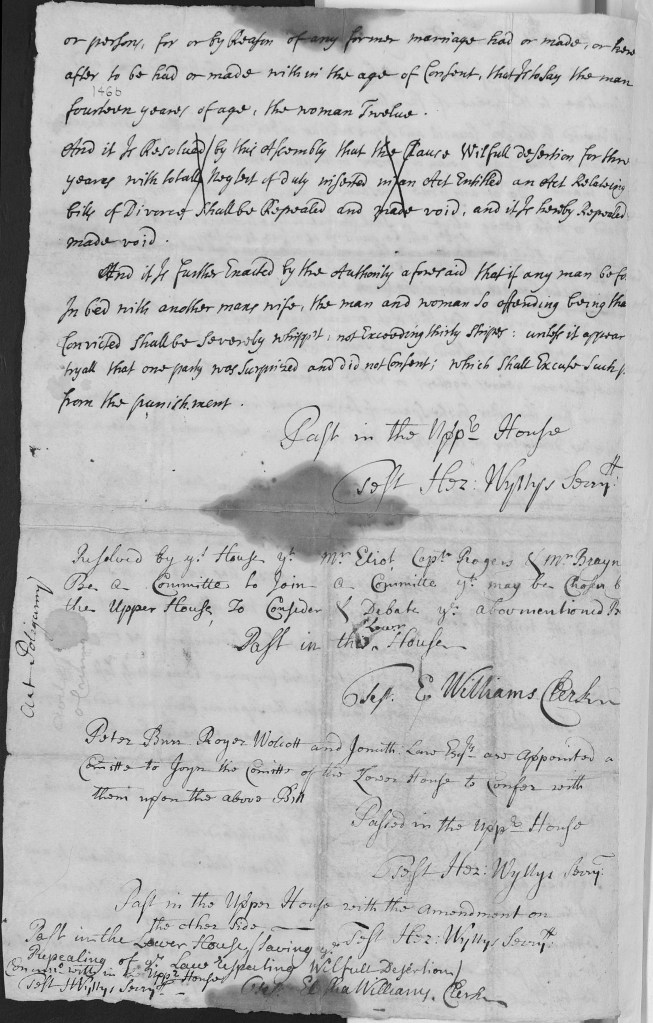 or persons, for or by Reason of any former marriage had or made, or here
after to be had or made within the age of Consent, that Is to say the man
146b
fourteen yeares of age, the woman Twelve.
And it Is Resolued by this Assembly that the Clause Wilfull Desertion for thre
yeares with totall Neglect of duty inserted in an Act Entitled an Act Relateing
bills of Divorce Shall be Repealed and made void, and it Is hereby Repealed
made void.
And it Is further Enacted by the Authority aforesaid that if any man be fo
In bed with another mans wife, the man and woman So offending being tha
Convicted Shall be Severely whipp't, not Exceeding thirty Stripes: unless it appear
tryall that one party was Surprized and did not Consent; which Shall Excuse Such
from the punishment.
Past in the Uppr House
Test Hez: Wyllys Secry:
Resolved by ye House yt Mr Eliot, Captn Rogers & Mr Brayn
Be a Committe to Join a Committe yt may be Chosen b
the Upper House, To Consider & Debate ye abovmentioned B
Past in the Lower House
Test. E Williams Clerk
Act Poligamy
Peter Burr Roger Wolcott and Jonath: Law Esqr are Appointed a
Comitte to Joyn the Comitte of the Lower House to Confer with
them upon the above Bill
Passed in the Uppr House
Test Hez: Wyllys Secry:
Past in the Upper House with the Amendment on
the other Side
Test Hez: Wyllys Secry:
Past in the Lower House, Saving ye
Repealing of ye Law Respecting Wilfull Desertion
in ye Uppr House
Test H Wyllys Secry
Test Williams. Clerk